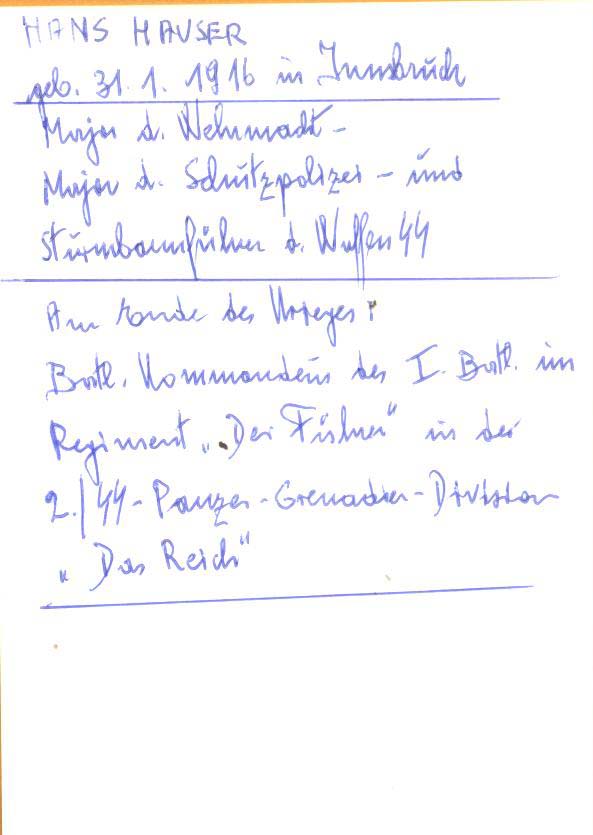 HANS HAUSER
geb. 31. 1. 1916 in Innsbruck
Major d. Wehrmacht -
Major d. Schutzpolizei - und
Sturmbannführer d. Waffen SS
Am Ende des Krieges:
Batl. Kommandeur des I. Batl. im
Regiment „Der Führer" in der
2./SS-Panzer-Grenadier-Division
„Das Reich"